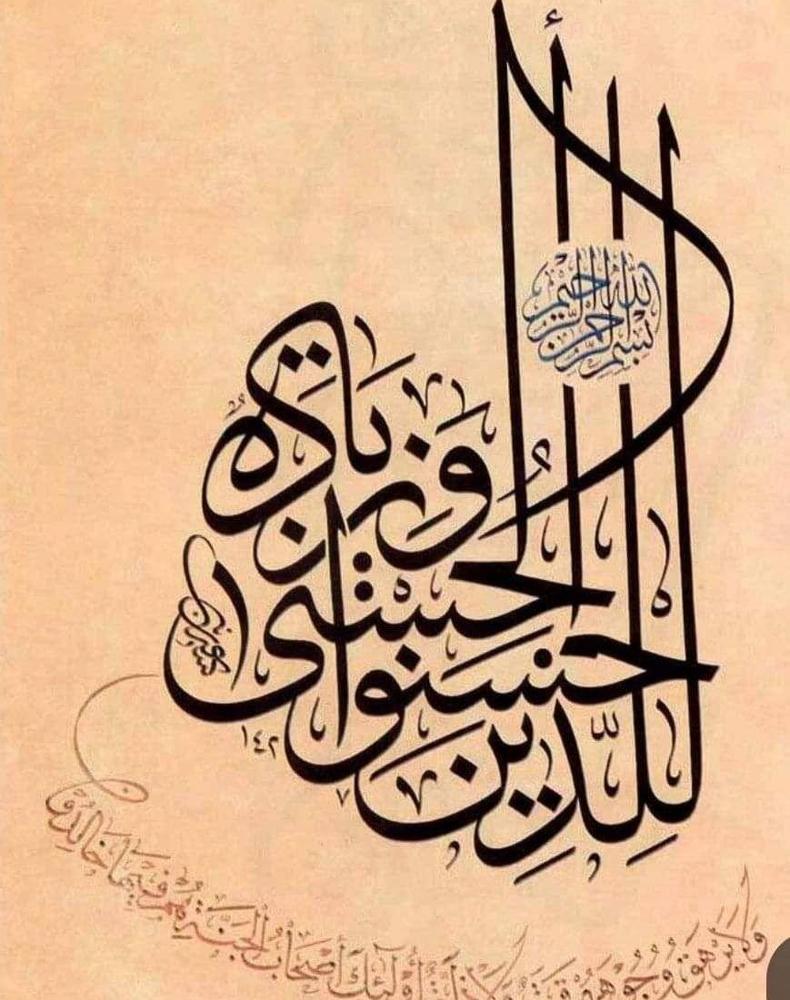 بسم الله الرحمن الرحيم
لِلَّذِينَ أَحْسَنُوا الْحُسْنَى وَزِيَادَةٌ
وَلَا يَرْهَقُ وُجُوهَهُمْ قَتَرٌ وَلَا ذِلَّةٌ أُولَٰئِكَ أَصْحَابُ الْجَنَّةِ هُمْ فِيهَا خَالِدُونَ
١٤٢٧